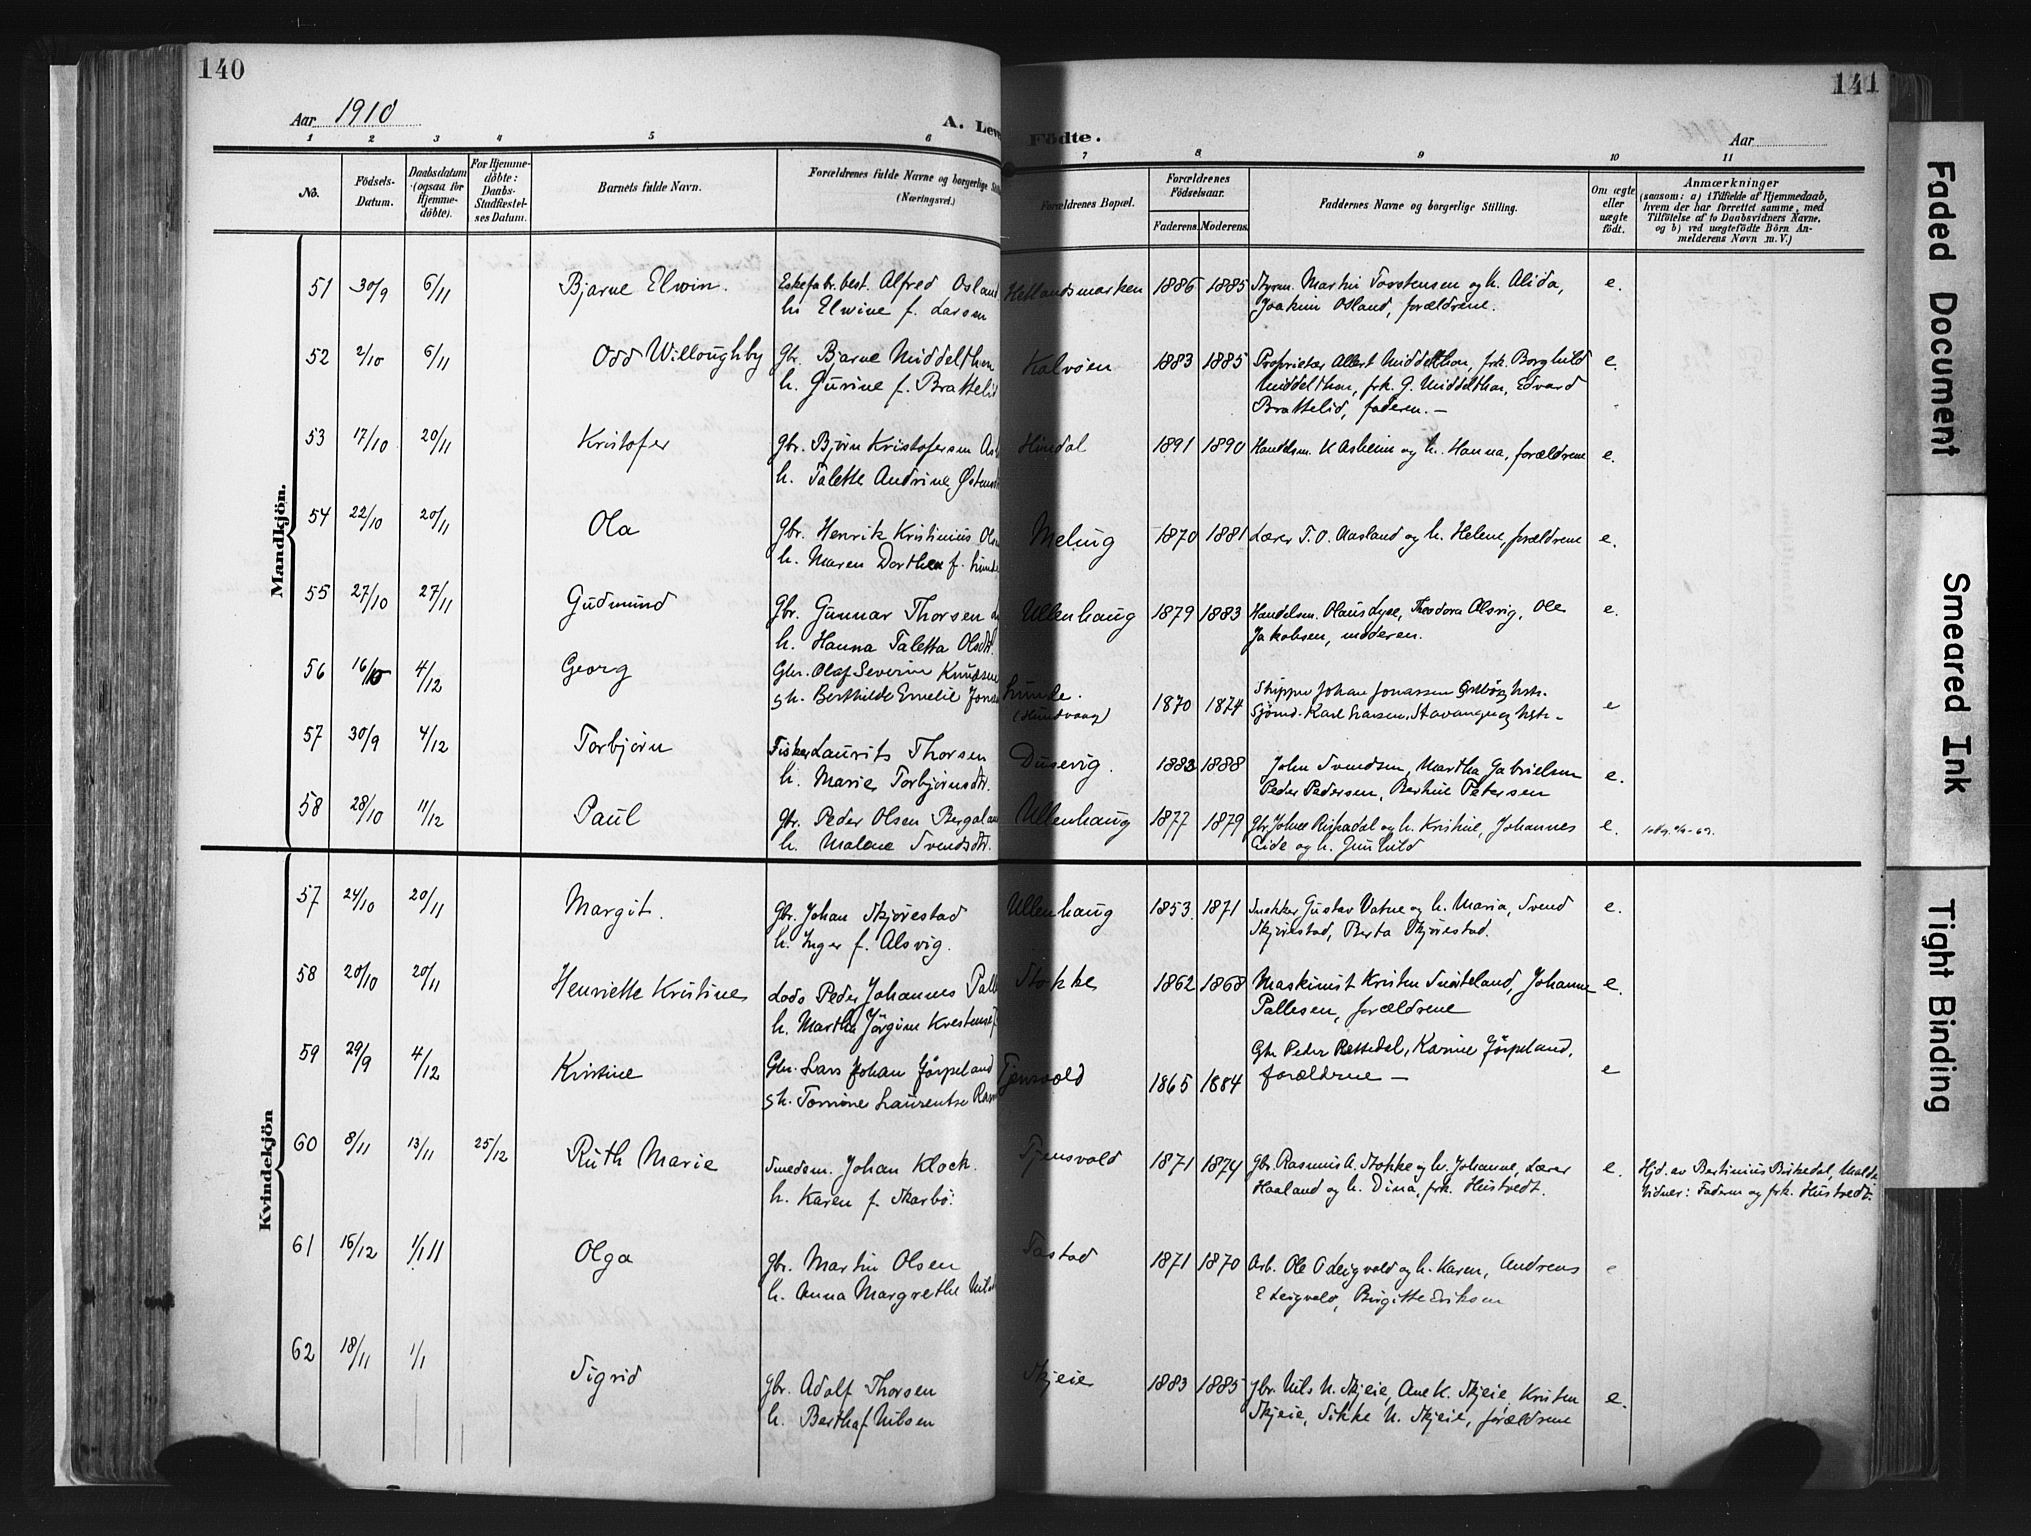 140
141
Aar 1910
A. Leve
Födte.
Aar
1 2 3 4 5 6 7 8 9 10 11
No.
Födsels-
Datum.
Daabsdatum
(ogsaa for
Hjemme-
döbte).
For Hjemme-
döbte:
Daabs-
Stadfæstel-
ses Datum.
Barnets fulde Navn.
Forældrenes fulde Navne og borgerlige Stilli
(Næringsvei.)
Forældrenes Bopæl.
Forældrenes
Födselsaar.
Faderens. Moderens.
Faddernes Navne og borgerlige Stilling.
Om ægte
eller
uægte
födt.
Anmærkninger
(saasom: a) i Tilfælde af Hjemmedaab,
hvem der har forrettet samme, med
Tilföielse af to Daabsvidners Navne,
og b) ved uægtefödte Börn An-
melderens Navn m. V.)
Mandkjön.
51 30/9 6/11 Bjarne Elwin. Eskefabr.best. Alfred Osland Hetlandsmarken 1886 1885 Styrm. Martin Torstensen og h. Alida, e.
h. Elwine f. Larsen Joakim Osland, forældrene.
52 2/10 6/11 Odd Willoughby Gbr. Bjarne Middelthon Kalvøen 1883 1885 Proprietær Albert Middelthon, frk. Borghild e.
h. Gurine f. Brattelid Middelthon, frk. G. Middelthon, Edvard
Brattelid, faderen. —
53 17/10 20/11 Kristofer Gbr. Bjørn Kristofersen As Hindal 1891 1890 Handelsm. K Asheim og h. Hanna, forældrene e.
h. Talette Andrine
54 22/10 20/11 Ola Gbr. Henrik Kristinius Ols Meling 1870 1881 Lærer T. O. Aasland og h. Helene, forældrene e.
h. Maren Dorthea f. Lunde
55 27/10 27/11 Gudmund Gbr. Gunnar Thorsen Ullenhaug 1879 1883 Handelsm. Olaus Lyse, Theodora Alsvig, Ole e.
h. Hanna Taletta Olsdt. Jakobsen, moderen.
56 16/10 4/12 Georg Gbr. Olaf Severin Knudsen Lunde. 1870 1874 Skipper Johan Jonassen hstr. e
h. Berthilde Emelie Jonas (Hundvaag) Sjømd. Karl Larsen, Stavanger og hstr.
57 30/9 4/12 Torbjørn Fisker Laurits Thorsen Dusevig. 1883 1888 John Svendsen, Martha Gabrielsen e.
h. Marie Torbjørnsdt. Peder Pedersen, Bertine Petersen
58 28/10 11/12 Paul Gbr. Peder Olsen Bergeland Ullenhaug 1877 1879 Gbr. Johne Rispadal og h. Kristine, Johannes e.
h. Malene Svendsdt. Eide og h. Gunhild
Kvindekjön
57 24/10 20/11 Margit. Gbr. Johan Skjørestad Ullenhaug 1853 1871 Snekker Gustav Vatne og h. Maria, Svend e.
h. Inger f. Alsvig. Skjørestad, Berta Skjørestad.
58 20/10 20/11 Henriette Kristine Lods Peder Johannes Palle Stokke 1862 1868 Maskinist Kristen Snørteland, Johanne e.
h. Martha Jørgine Krestense Pallesen, forældrene
59 29/9 4/12 Kristine Gbr. Lars Johan Jørpeland Tjensvold 1865 1884 Gbr. Peder Rettedal, Karine Jørpeland, e
h. Tomine Laurentse Rasm forældrene —
60 8/11 13/11 25/12 Ruth Marie Smedem. Johan Klock. Tjensvold 1871 1874 Gbr. Rasmus A. Stokke og h. Johanne, Lærer e. Hjd. av Bertinius Birkedal,
h. Karen f. Skarbø. Haaland og h. Dina, frk. Hustvedt. Vidner: Faderen og frk. Hustvedt.
61 16/12 1/1 11 Olga Gbr. Martin Olsen Tastad 1871 1870 Arb. Ole O Leigvold og h. Karen, Andreas e
h. Anna Margrethe Nils E Leigvold, Birgitte Eriksen
62 18/11 1/1 Sigrid Gbr. Adolf Thorsen Skjeie 1883 1885 Gbr. Nils N. Skjeie, Ane K. Skjeie, Kristen e.
h. Bertha f. Nilsen Skjeie, Sikke N. Skjeie, forældrene
Faded Document
Smeared Ink
Tight Binding